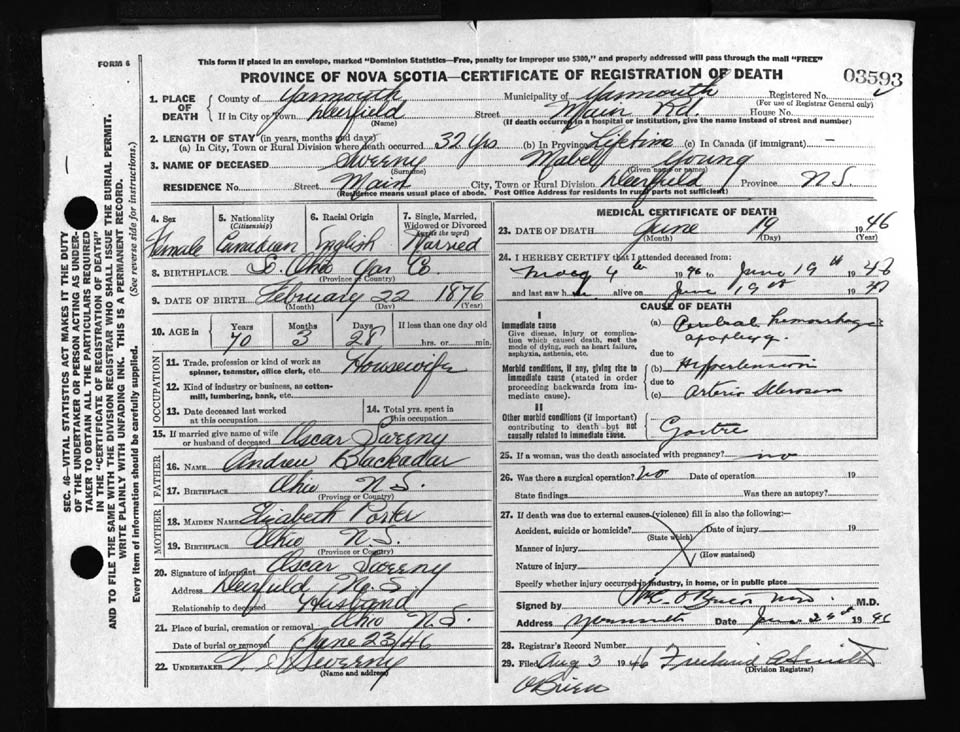 FORM 6
This form if placed in an envelope, marked "Dominion Statistics—Free, penalty for improper use $300," and properly addressed will pass through the mail "FREE"
PROVINCE OF NOVA SCOTIA—CERTIFICATE OF REGISTRATION OF DEATH
03593
1. PLACE OF DEATH
County of Yarmouth Municipality of Yarmouth Registered No.
(For use of Registrar General only)
If in City or Town Deerfield Street Main Rd. House No.
(Name) (If death occurred in a hospital or institution, give the name instead of street and number)
2. LENGTH OF STAY (in years, months and days)
(a) In City, Town or Rural Division where death occurred 32 yrs (b) In Province Lifetime (c) In Canada (if immigrant) —
3. NAME OF DECEASED Sweeny Mabel Young
(Surname) (Given name or names)
RESIDENCE No. Street Main City, Town or Rural Division Deerfield Province N.S.
(Residence means usual place of abode. Post Office Address for residents in rural parts not sufficient)
4. Sex Female
5. Nationality (Citizenship) Canadian
6. Racial Origin English
7. Single, Married, Widowed or Divorced (write the word) Married
8. BIRTHPLACE S. Ohio Yar Co.
(Province or Country)
9. DATE OF BIRTH February 22 1876
(Month) (Day) (Year)
10. AGE in Years 70 Months 3 Days 28 If less than one day old hrs. or min.
OCCUPATION
11. Trade, profession or kind of work as spinner, teamster, office clerk, etc. Housewife
12. Kind of industry or business, as cotton-mill, lumbering, bank, etc.
13. Date deceased last worked at this occupation
14. Total yrs. spent in this occupation
15. If married give name of wife or husband of deceased Oscar Sweeny
FATHER
16. NAME Andrew Blackadar
17. BIRTHPLACE Ohio N.S.
(Province or Country)
MOTHER
18. MAIDEN NAME Elizabeth Porter
19. BIRTHPLACE Ohio N.S.
(Province or Country)
20. Signature of informant Oscar Sweeny
Address Deerfield N.S.
Relationship to deceased Husband
21. Place of burial, cremation or removal Ohio N.S.
Date of burial or removal June 23/46
22. UNDERTAKER Sweeny
(Name and address)
MEDICAL CERTIFICATE OF DEATH
23. DATE OF DEATH June 19 1946
(Month) (Day) (Year)
24. I HEREBY CERTIFY that I attended deceased from:
May 4th 1946 to June 19th 1946
and last saw her alive on June 19th 19
CAUSE OF DEATH
I
Immediate cause
Give disease, injury or complication which caused death, not the mode of dying, such as heart failure, asphyxia, asthenia, etc.
(a) Cerebral hemorrhage apoplexy.
due to
Morbid conditions, if any, giving rise to immediate cause (stated in order proceeding backwards from immediate cause).
(b) Hypertension
due to
(c) Arterio Sclerosis
II
Other morbid conditions (if important) contributing to death but not causally related to immediate cause.
Goitre
25. If a woman, was the death associated with pregnancy? no
26. Was there a surgical operation? no Date of operation 19
State findings Was there an autopsy?
27. If death was due to external causes (violence) fill in also the following:—
Accident, suicide or homicide? Date of injury 19
(State which)
Manner of injury
(How sustained)
Nature of injury
Specify whether injury occurred in industry, in home, or in public place
Signed by O'Brien M.D. M.D.
Address Yarmouth Date June 1946
28. Registrar's Record Number
29. Filed Aug 3 1946 Smith
(Division Registrar)
O'Brien
SEC. 46—VITAL STATISTICS ACT MAKES IT THE DUTY
OF THE UNDERTAKER OR PERSON ACTING AS UNDER-
TAKER TO OBTAIN ALL THE PARTICULARS REQUIRED
IN THE "CERTIFICATE OF REGISTRATION OF DEATH"
AND TO FILE THE SAME WITH THE DIVISION REGISTRAR WHO SHALL ISSUE THE BURIAL PERMIT.
WRITE PLAINLY WITH UNFADING INK. THIS IS A PERMANENT RECORD.
Every item of information should be carefully supplied. (See reverse side for instructions.)